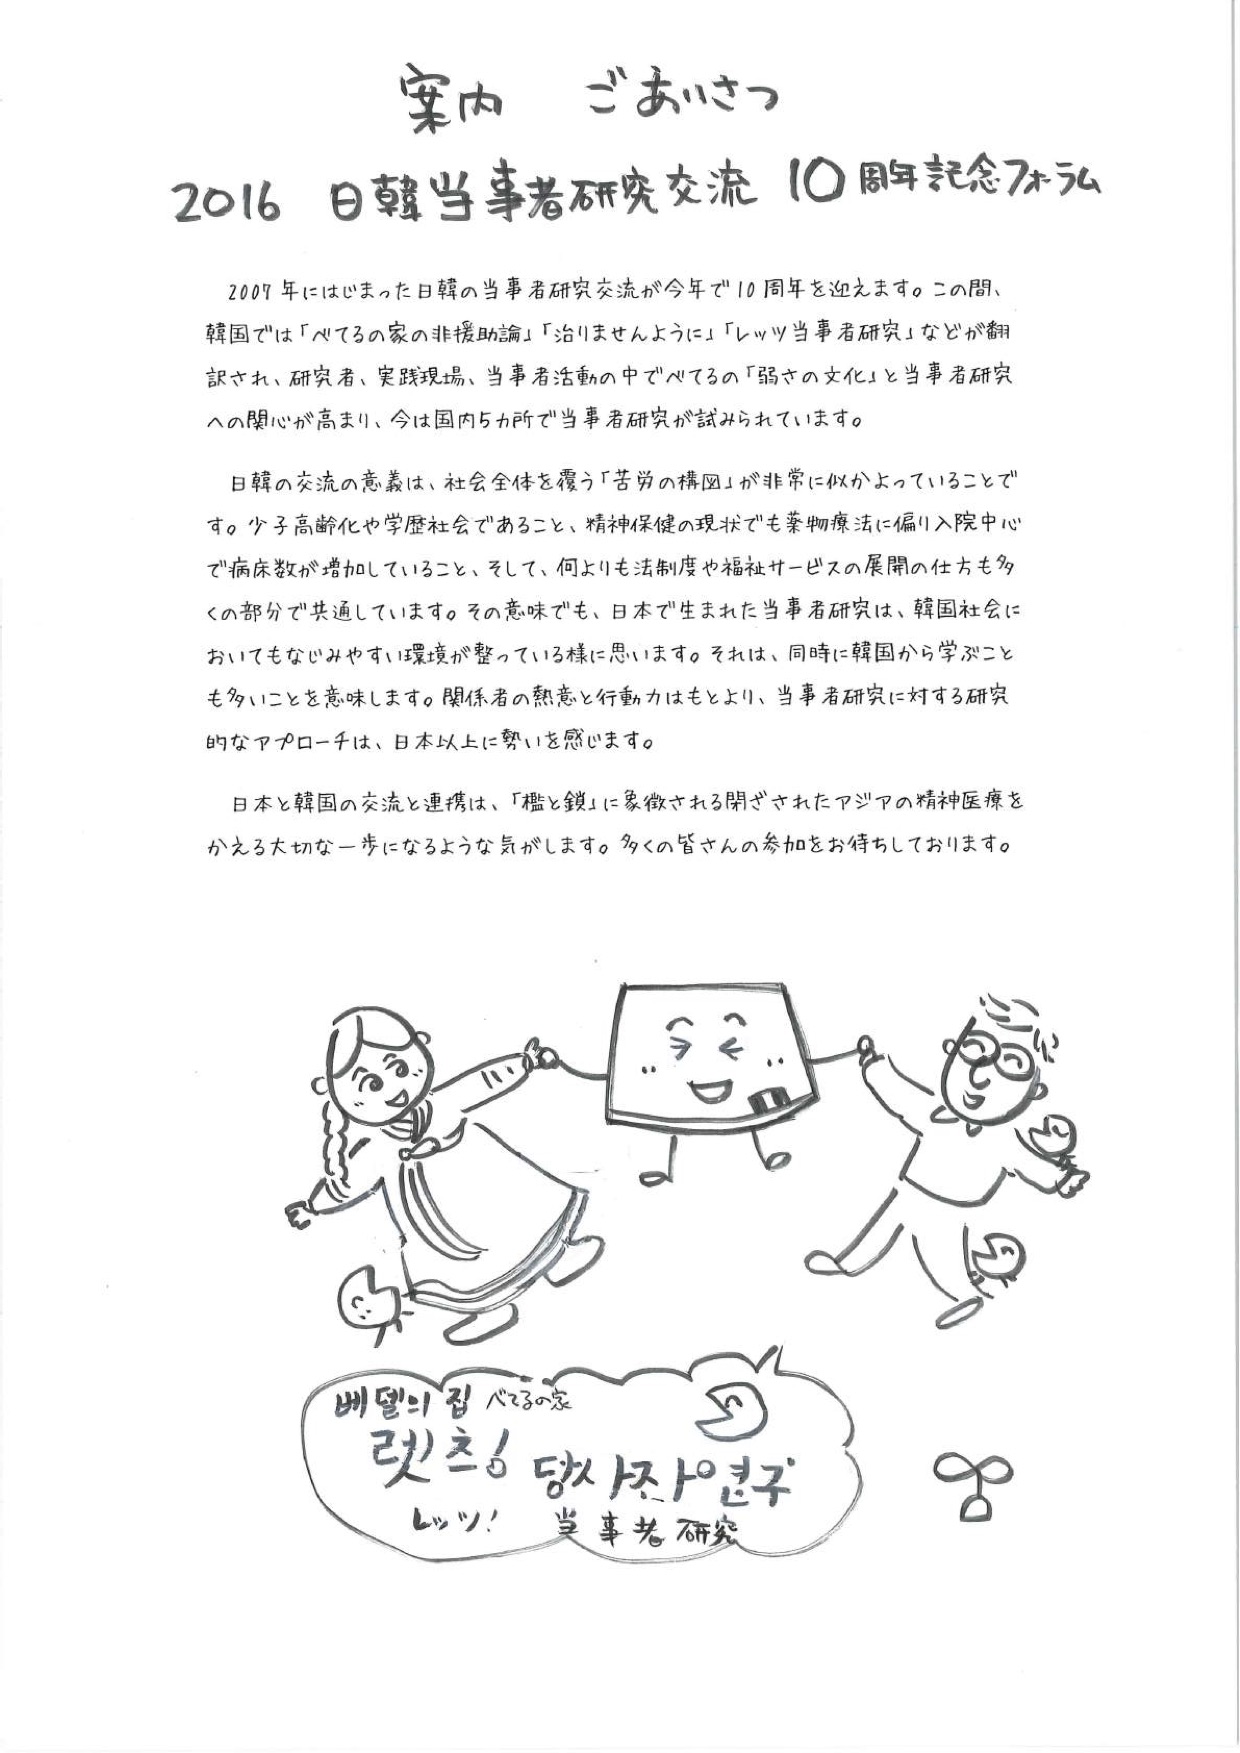 案内　ごあいさつ
2016 日韓当事者研究交流 10周年記念フォーラム
2007年にはじまった日韓の当事者研究交流が今年で10周年を迎えます。この間、
韓国では「べてるの家の非援助論」「治りませんように」「レッツ当事者研究」などが翻
訳され、研究者、実践現場、当事者活動の中でべてるの「弱さの文化」と当事者研究
への関心が高まり、今は国内5カ所で当事者研究が試みられています。
日韓の交流の意義は、社会全体を覆う「苦労の構図」が非常に似かよっていることで
す。少子高齢化や学歴社会であること、精神保健の現状でも薬物療法に偏り入院中心
で病床数が増加していること、そして、何よりも法制度や福祉サービスの展開の仕方も多
くの部分で共通しています。その意味でも、日本で生まれた当事者研究は、韓国社会に
おいてもなじみやすい環境が整っている様に思います。それは、同時に韓国から学ぶこと
も多いことを意味します。関係者の熱意と行動力はもとより、当事者研究に対する研究
的なアプローチは、日本以上に勢いを感じます。
日本と韓国の交流と連携は、「檻と鎖」に象徴される閉ざされたアジアの精神医療を
かえる大切な一歩になるような気がします。多くの皆さんの参加をお待ちしております。
베델의 집 べてるの家
렛츠! 당사자연구
レッツ! 当事者研究